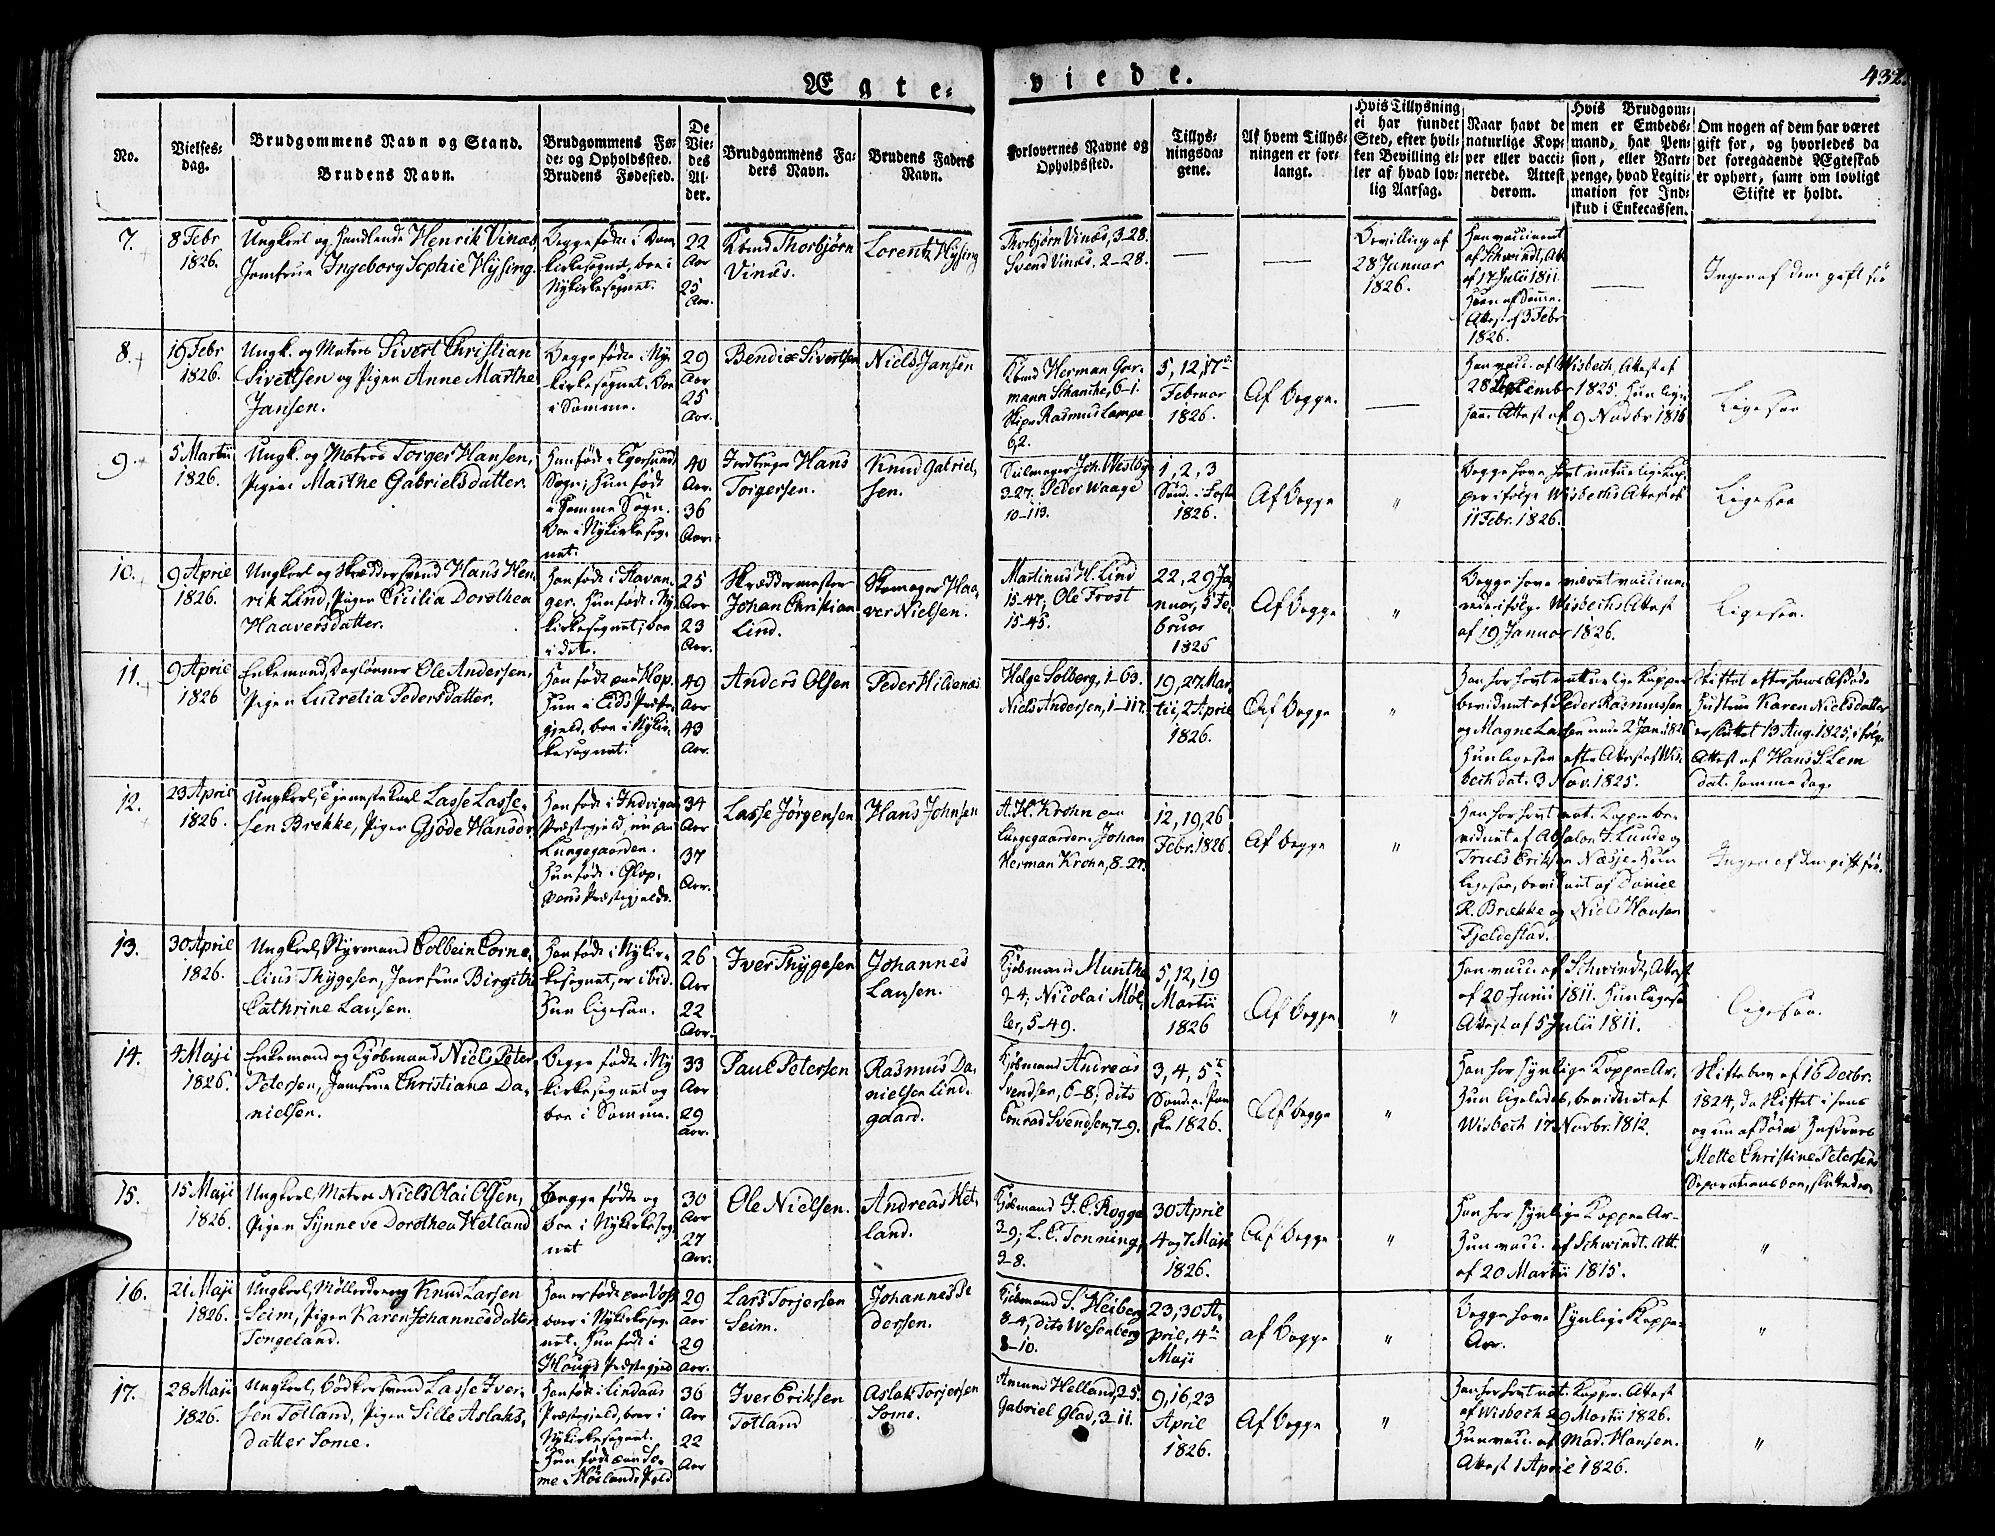 Ægte-
viede.
432.
No.
Vielses-
dag.
Brudgommens Navn og Stand.
Brudens Navn.
Brudgommens Fø-
de- og Opholdssted.
Brudens Fødested.
De
Vie-
des
Al-
der.
Brudgommens Fa-
ders Navn.
Brudens Faders
Navn.
Forlovernes Navne og
Opholdssted.
Tillys-
ningsda-
gene.
Af hvem Tillys-
ningen er for-
langt.
Hvis Tillysning
ei har fundet
Sted, efter hvil-
ken Bevilling el-
ler af hvad lov-
lig Aarsag.
Naar havt de
naturlige Kop-
per eller vacci-
nerede. Attest
derom.
Hvis Brudgom-
men er Embeds-
mand, har Pen-
sion, eller Vart-
penge, hvad Legiti-
mation for Ind-
skud i Enkecassen.
Om nogen af dem har været
gift før, og hvorledes da
det foregaaende Ægteskab
er ophørt, samt om lovligt
Skifte er holdt.
7.
8 Febr
1826.
Ungkarl og Handlende Henrik Vinæs
Jomfrue Ingeborg Sophie Hysing.
Begge fødte i Dom-
kirkesognet, boe i
Nykirkesognet.
22
Aar
25
Aar.
Kbmd Thorbjørn
Vinæs.
Lorentz Hysing
Thorbjørn Vinæs, 3-28.
Svend Vinæs. 2-28.
Bevilling af
28 Januar
1826.
Han vaccineret
af Schwindt, Att.
af 17 Julii 1811
Hun af Samme.
Attest af 3 Febr
1826.
Ingen af dem gift før
8.
19 Febr
1826.
Ungk. og Matros Sivert Christian
Sivertsen og Pigen Anne Marthe
Jansen.
Begge fødte i Ny-
kirkesognet. boe
i Samme.
29
Aar
25
Aar.
Bendix Sivertsen
Niels Jansen
Kbmd Herman Gar-
mann Schanche, 6-1.
Skipr Rasmus Lampe
6,2.
5, 12, 17de
Februar
1826.
Af begge.
Han vacc. af Wisbech, Attest af
28 September 1825. Hun lige-
saa. Attest af 9 Novbr 1816
Ligesaa
9.
5 Martii
1826.
Ungk. og Matros Torger Hansen,
Pigen Marthe Gabrielsdatter.
Han født i Egersunds
Sogn; Hun født
i Samme Sogn.
Boe i Nykirkesog-
net.
40
Aar.
36
Aar.
Hans
Torgersen.
Knud Gabriel-
sen.
Joh. Westbye
3-27. Peder Waage
10-113.
1, 2, 3
Sønd. i Faste
1826.
Af begge
"
Begge have havt naturlige Kop-
per ifølge Wisbechs Attest af
11 Febr. 1826.
Ligesaa
10.
9 April
1826.
Ungkarl og Skræddersvend Hans Hen-
rik Lind, Pigen Cicilia Dorothea
Haaversdatter.
Han født i Stavan-
ger. Hun født i Ny-
kirkesognet; boe
i dito.
25
Aar
23
Aar.
Skræddermester
Johan Christian
Lind.
Skomager Haa-
ver Nielsen.
Martinus H. Lind
15-47, Ole Frost
15-45.
22, 29 Ja-
nuar, 5 Fe-
bruar
1826
Af begge
"
Begge have været vaccine-
rede ifølge Wisbechs Attest
af 19 Januar 1826.
Ligesaa.
11.
9 April
1826
Enkemand, Dagløner Ole Andersen,
Pigen Lucretia Pedersdatter.
Han født paa Hop.
Hun i Eids Præste-
gjeld, boe i Nykir-
kesognet.
49
Aar
43
Aar.
Anders Olsen
Peder Hildenæs
Helge Solberg, 1-63.
Niels Andersen, 1-117.
19, 27 Mar-
tii, 2 April
1826.
Af begge
"
Han har havt naturlige Kopper
bevidnet af Peder Rasmussen
og Magne Larsen under 2 Jan. 1826
Hun ligesaa efter Attest af Wis-
bech dat. 3 Nov. 1825.
Skiftet efter hans Afdøde
Hustrue Karen Nielsdatter
er sluttet 13 Aug. 1825, ifølge
Attest af Hans S. Lem
dat. samme dag.
12.
23 April
1826.
Ungkarl, Tjenestekarl Lasse Lasse-
sen Brekke, Pigen Gjøde Hansdr
Han født i Indvigens
Præstegjeld, nu paa
Lungegaarden.
Hun født i Glop-
pens Præstegjeld.
34
Aar
37
Aar.
Lasse Jørgensen
Hans Johnsen
A. H. Krohn paa
Lungegaarden. Johan
Herman Krohn, 8-27.
12, 19, 26
Febr. 1826.
Af begge
"
Han har havt nat. Kopper be-
vidnet af Absalon J. Lunde og
Truls Eriksen Næsje. Hun
ligesaa, bevidnet af Daniel
R. Brække og Niels Hansen
Fjeldestad.
Ingen af dem gift før.
13.
30 April
1826.
Ungkarl, Styrmand Colbein Corne-
lius Thygesen, Jomfrue Birgithe
Cathrine Lausen.
Han født i Nykir-
kesognet, er ibid.
Hun ligesaa.
26
Aar
22
Aar.
Iver Thygesen
Johannes
Lausen.
Kjøbmand Munthe
2-4; Nicolai Møl-
ler, 5-49.
5, 12, 19
Martii
1826
Af begge
"
Han vacc. af Schwindt, Attest
af 20 Junii 1811. Hun ligesaa
Attest af 5 Julii 1811.
Ligesaa.
14.
4 Maji
1826.
Enkemand og Kjøbmand Niels Peter
Petersen, Jomfrue Christiane Da-
nielsen.
Begge fødte i Ny-
kirkesognet og
boe i Samme.
33
Aar
29
Aar.
Paul Petersen
Rasmus Da-
nielsen Lind-
gaard.
Kjøbmand Andreas
Svendsen, 6-8; dito
Conrad Svendsen, 7-9.
3, 4, 5te
Sønd. e. Paa-
ske 1826.
Af begge
"
Han har synlige Koppe-Ar.
Hun ligeledes, bevidnet af
Wisbech 17 Novbr. 1812.
Skiftebrev af 16 Decbr.
1824, da Skiftet i hans
og nu afdøde Hustrues
Mette Christine Petersens
Separationsboe, sluttedes
15.
15 Maji
1826.
Ungkarl, Matros Niels Olai Olsen,
Pigen Synneve Dorothea Hetland
Begge fødte og
boe i Nykirkesog-
net
30
Aar
27
Aar.
Ole Nielsen.
Andreas Het-
land.
Kjøbmand J. C. Rogge
3-9; L. C. Tonning,
3-8.
30 April
4 og 7 Maji
1826.
Af begge
"
Han har synlige Koppe-Ar-
Hun vacc. af Schwindt. Att.
af 20 Martii 1815.
"
16.
21 Maji
1826.
Ungkarl, Møllerdreng Knud Larsen
Seim, Pigen Karen Johannesdatter
Tengeland.
Han er født paa Voss
boer i Nykirkesog-
net. Hun født i
Hougs Præstegjeld
29
Aar
29
Aar.
Lars Torjersen
Seim.
Johannes Pe-
dersen.
Kjøbmand S. Heiberg
8-4, dito Wesenberg
8-10.
23, 30 A-
pril, 4de
Maji
af begge
"
Begge have synlige Koppe-
Arr.
"
17.
28 Maji
1826.
Ungkarl, Bødkersvend Lasse Iver-
sen Totland, Pigen Sille Aslaks-
datter Some.
Han født i Lindaas
Præstegjeld, boer i
Nykirkesognet.
Hun født paa So-
me i Høilands Pgld
36
Aar
22
Aar
Iver Eriksen
Totland
Aslak Torjersen
Some.
Amund Helland, 2-5.
Gabriel Glad, 3-11.
9, 16, 23
April
1826.
Af begge
"
Han har havt nat. Kopper. Attest
af Wisbech 29 Martii 1826.
Hun vacc. af Mad. Hansen.
Attest 1 April 1826.
"